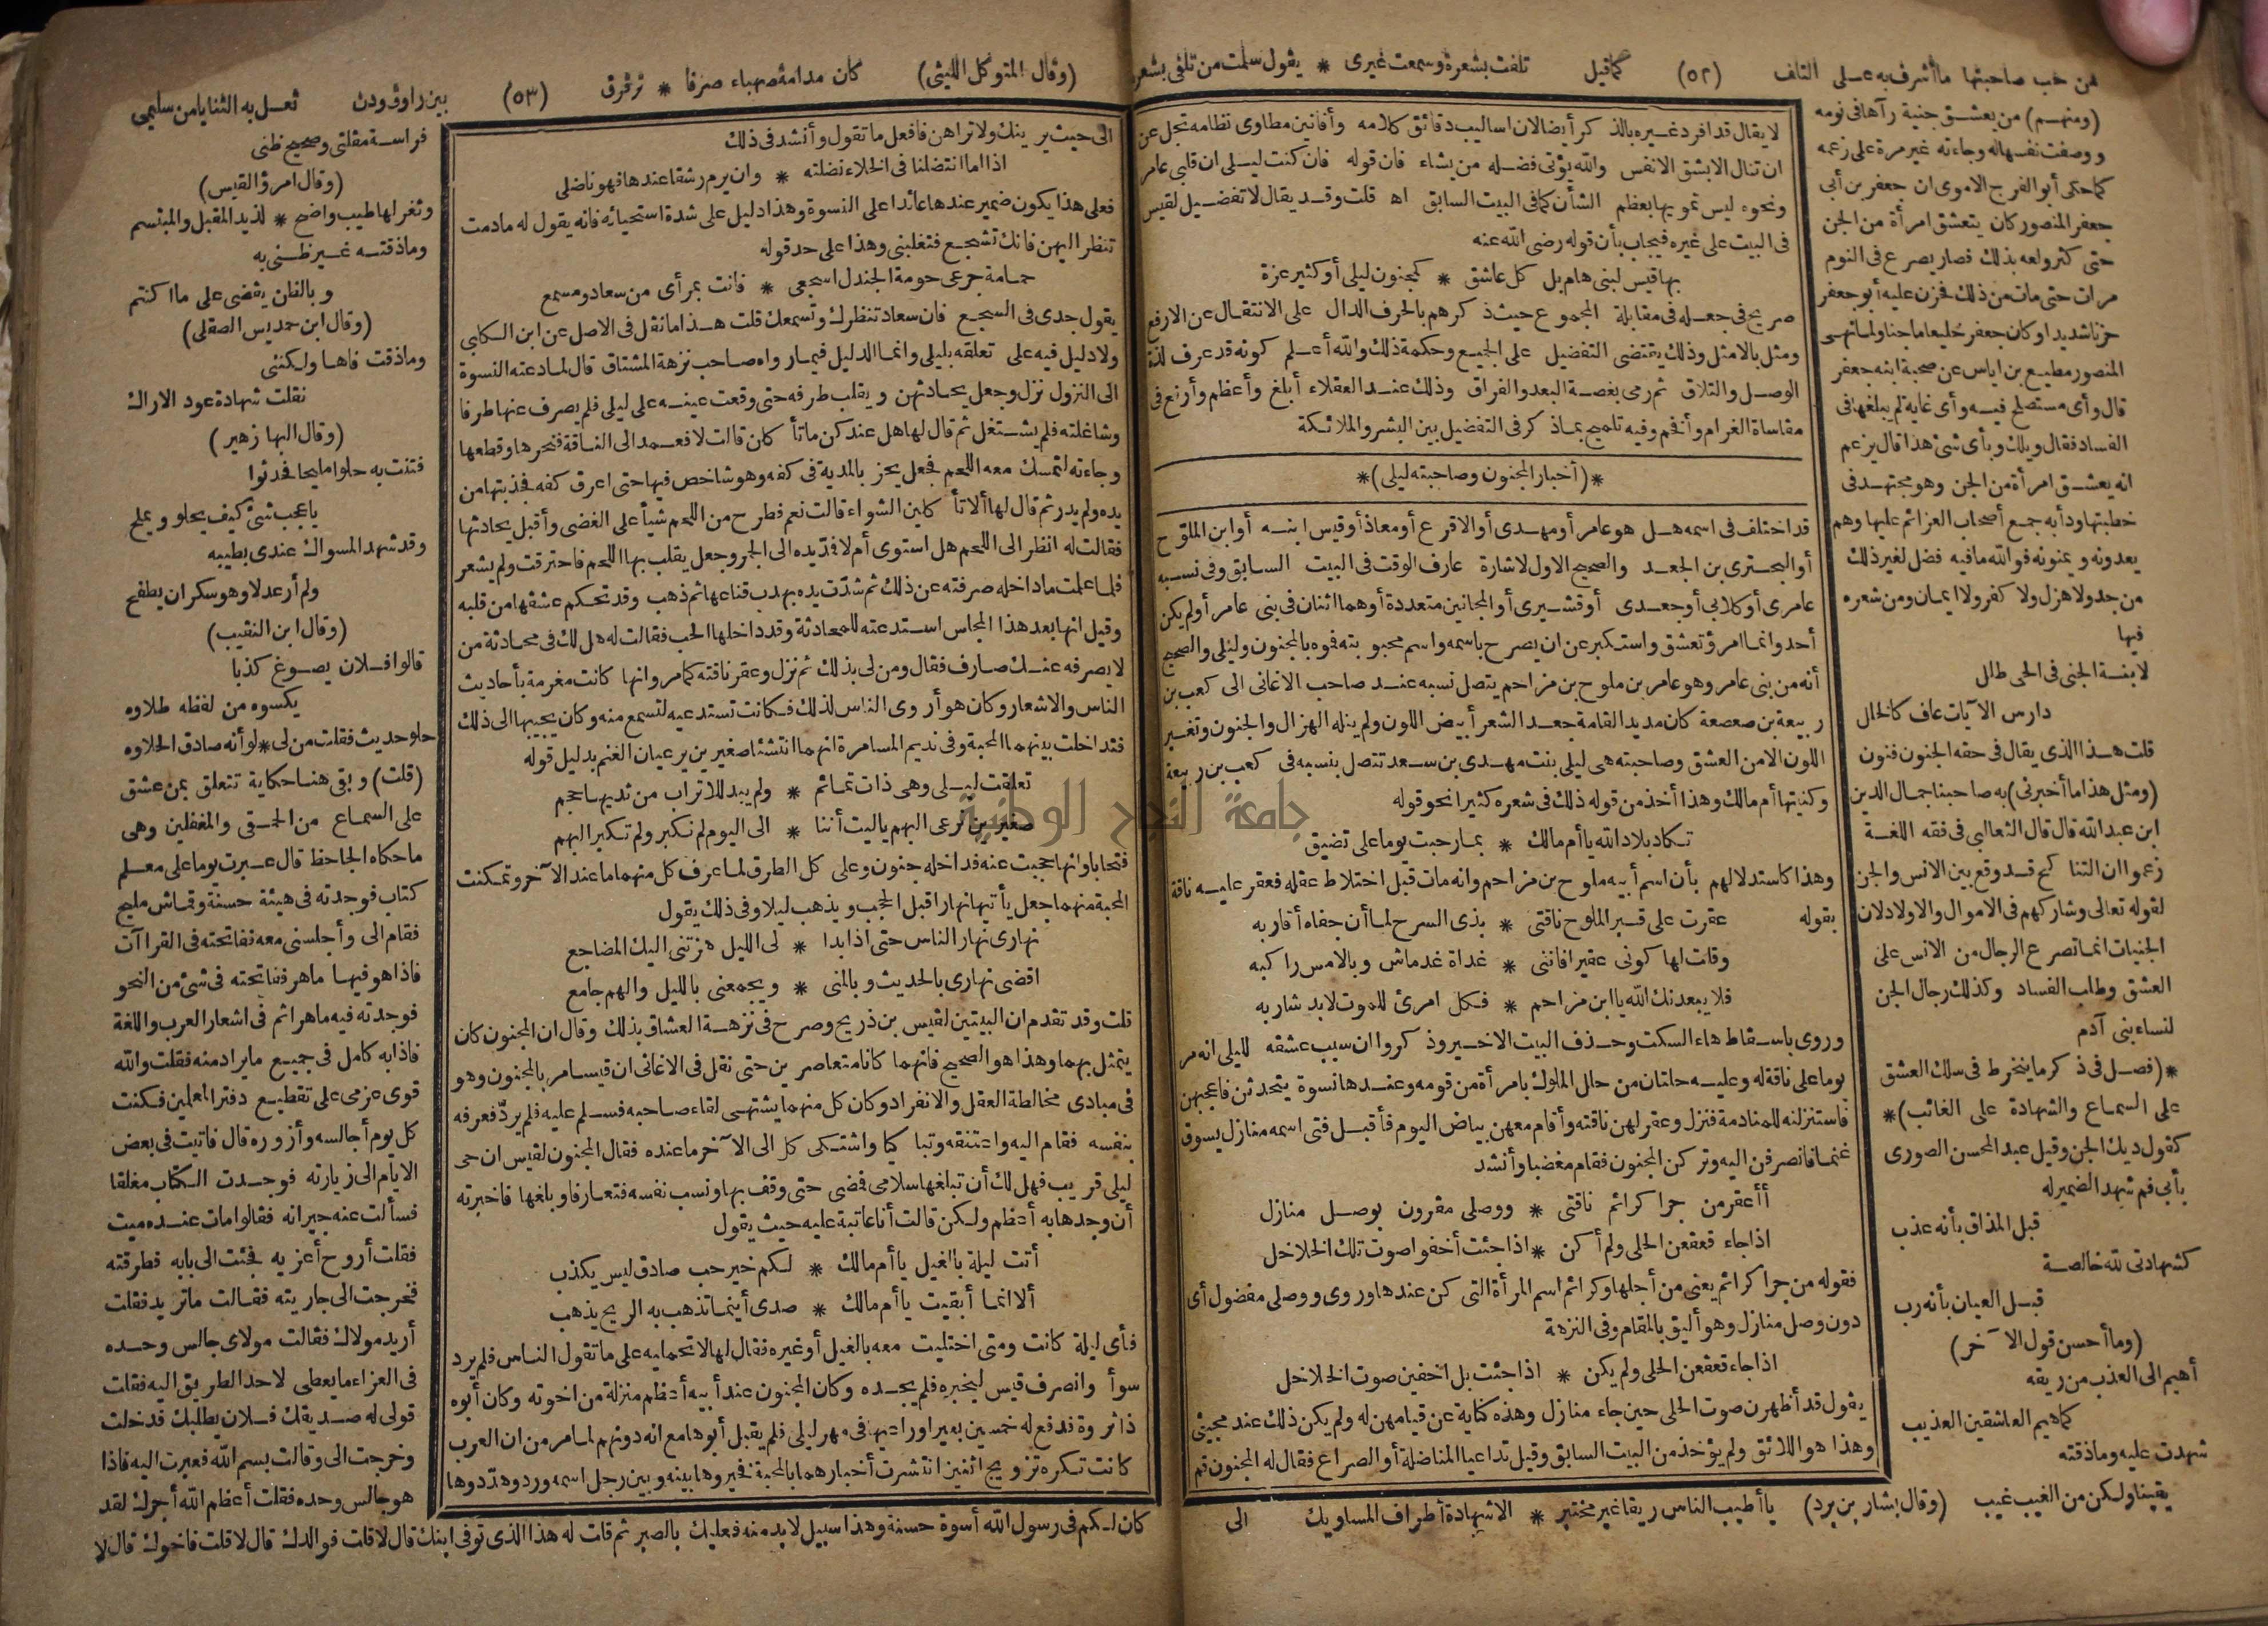 من حب صاحبتها ما أشرف به على التلف (٥٢) كما قيل تلفت بشعرة وسمعت غيرى * يقول سلمت من تلفى بشعره
(ومنهم) من يعشق جنية رآها فى نومه
ووصفت نفسها له وجاءته غير مرة على زعمه
كما حكى أبو الفرج الاموى ان جعفر بن أبى
جعفر المنصور كان يتعشق امرأة من الجن
حتى كثر ولعه بذلك فصار يصرع فى النوم
مرات حتى مات من ذلك فحزن عليه أبو جعفر
حزنا شديدا وكان جعفر خليعا ماجنا ولما نهى
المنصور مطيع بن اياس عن صحبة ابنه جعفر
قال وأى مستصلح فيه وأى غاية لم يبلغها فى
الفساد فقال ويلك وبأى شئ هذا قال يزعم
انه يعشق امرأة من الجن وهو مجتهد فى
خطبتها ودأبه جمع أصحاب العزائم عليها وهم
يعدونه ويمنونه فوالله ما فيه فضل لغير ذلك
من جد ولا هزل ولا كفر ولا ايمان ومن شعره
فيها
لابنة الجنى فى الحى طال
دارس الآيات عاف كالخال
قلت هذا الذى يقال فى حقه الجنون فنون
(ومثل هذا ما أخبرنى) به صاحبنا جمال الدين
ابن عبد الله قال قال الثعالبى فى فقه اللغة
زعموا ان التناكح قد وقع بين الانس والجن
لقوله تعالى وشاركهم فى الاموال والاولاد لان
الجنيات انما تصرع الرجال من الانس على
العشق وطلب الفساد وكذلك رجال الجن
لنساء بنى آدم
*(فصل فى ذكر ما ينخرط فى سلك العشق
على السماع والشهادة على الغائب)*
كقول ديك الجن وقيل عبد المحسن الصورى
بأبى فم شهد الضمير له
قبل المذاق بأنه عذب
كشهادتى لله خالصة
قبل العيان بأنه رب
(وما أحسن قول الآخر)
أهيم الى العذب من ريقه
كما هيم العاشقين العذيب
شهدت عليه وما ذقته
يقينا ولكن من الغيب غيب (وقال بشار بن برد) يا أطيب الناس ريقا غير مختبر * الا شهادة أطراف المساويك
لا يقال قد افرد غيره بالذكر أيضا لان اساليب دقائق كلامه وأفانين مطاوى نظامه تجل عن
ان تنال الابشق الانفس والله يؤتى فضله من يشاء فان قوله فان كنت ليلى ان قلبى عامر
ونحوه ليس تمويها بعظم الشأن كما فى البيت السابق اه قلت وقد يقال لا تفضيل لقيس
فى البيت على غيره فيجاب بأن قوله رضى الله عنه
بها قيس لبنى هام بل كل عاشق * كمجنون ليلى أو كثير عزة
صريح فى جعله فى مقابلة المجموع حيث ذكرهم بالحرف الدال على الانتقال عن الارفع
ومثل بالامثل وذلك يقتضى التفضيل على الجميع وحكمة ذلك والله أعلم كونه قد عرف لذة
الوصل والتلاق ثم رمى بغصة البعد والفراق وذلك عند العقلاء أبلغ وأعظم وأرفع فى
مقاساة الغرام وأفخم وفيه تلميح بما ذكر فى التفضيل بين البشر والملائكة
*(أخبار المجنون وصاحبته ليلى)*
قد اختلف فى اسمه هل هو عامر أو مهدى أو الاقرع أو معاذ أو قيس ابنه أو ابن الملوّح
أو البحترى بن الجعد والصحيح الاول لاشارة عارف الوقت فى البيت السابق وفى نسبه
عامرى أو كلابى أو جعدى أو قشيرى أو المجانين متعددة أو هما اثنان فى بنى عامر أو لم يكن
أحد وانما امرؤ تعشق واستكبر عن ان يصرح باسمه واسم محبوبته فموه بالمجنون وليلى والصحيح
أنه من بنى عامر وهو عامر بن ملوح بن مزاحم يتصل نسبه عند صاحب الاغانى الى كعب بن
ربيعة بن صعصعة كان مديد القامة جعد الشعر أبيض اللون ولم ينله الهزال والجنون وتغير
اللون الا من العشق وصاحبته هى ليلى بنت مهدى بن سعد تتصل بنسبه فى كعب بن ربيعة
وكنيتها أم مالك وهذا أخذ من قوله ذلك فى شعره كثيرا نحو قوله
تكاد بلاد الله يا أم مالك * بما رحبت يوما على تضيق
وهذا كاستدلالهم بأن اسم أبيه ملوح بن مزاحم وانه مات قبل اختلاط عقله فعقر عليه ناقة
بقوله عقرت على قبر الملوح ناقتى * بذى السرح لما أن جفاه أقاربه
وقلت لها كونى عقيرا فاننى * غداة غد ماش وبالامس راكبه
فلا يبعدنك الله يا ابن مزاحم * فكل امرئ للموت لابد شاربه
وروى باسقاط هاء السكت وحذف البيت الاخير وذكروا ان سبب عشقه لليلى انه مر
يوما على ناقة له وعليه حلتان من حلل الملوك بامرأة من قومه وعندها نسوة يتحدثن فاعجبهن
فاستنزلنه للمنادمة فنزل وعقر لهن ناقته وأقام معهن بياض اليوم فأقبل فتى اسمه منازل يسوق
غنما فانصرفن اليه وتركن المجنون فقام مغضبا وأنشد
أأعقر من جرا كرائم ناقتى * ووصلى مقرون بوصل منازل
اذا جاء قعقعن الحلى ولم أكن * اذا جئت أخفوا صوت تلك الخلاخل
فقوله من جرا كرائم يعنى من أجلها وكرائم اسم المرأة التى كن عندها وروى ووصلى مفضول أى
دون وصل منازل وهو أليق بالمقام وفى النزهة
اذا جاء قعقعن الحلى ولم يكن * اذا جئت بل اخفين صوت الخلاخل
يقول قد أظهرن صوت الحلى حين جاء منازل وهذه كناية عن قيامهن له ولم يكن ذلك عند مجيئى
وهذا هو اللائق ولم يؤخذ من البيت السابق وقيل تداعيا المناضلة أو الصراع فقال له المجنون قم
الى
(وقال المتوكل الليثى) كان مدامة صهباء صرفا * ترقرق (٥٣) بين راووق ودن تعل به الثنايا من سليمى
الى حيث يرينك ولا تراهن فافعل ما تقول وأنشد فى ذلك
اذا ما انتضلنا فى الخلاء نضلته * وان يرم رشقا عندها فهو ناضلى
فعلى هذا يكون ضمير عندها عائدا على النسوة وهذا دليل على شدة استحيائه فانه يقول له مادمت
تنظر اليهن فانك تشجع فتغلبنى وهذا على حد قوله
حمامة جرعى حومة الجندل اسجعى * فانت بمرأى من سعاد ومسمع
يقول جدى فى السجع فان سعاد تنظرك وتسمعك قلت هذا ما نقل فى الاصل عن ابن الكلبى
ولا دليل فيه على تعلقه بليلى وانما الدليل فيما رواه صاحب نزهة المشتاق قال لما دعته النسوة
الى النزول نزل وجعل يحادثهن ويقلب طرفه حتى وقعت عينه على ليلى فلم يصرف عنها طرفا
وشاغلته فلم يشتغل ثم قال لها هل عندكن ما تأكلن قالت لا فعمد الى الناقة فنحرها وقطعها
وجاءته لتمسك معه اللحم فجعل يحز بالمدية فى كفه وهو شاخص فيها حتى اعرق كفه فجذبتها من
يده ولم يدر ثم قال لها ألا تأكلين الشواء قالت نعم فطرح من اللحم شيأ على الغضى وأقبل يحادثها
فقالت له انظر الى اللحم هل استوى أم لا فمدّ يده الى الجمر وجعل يقلب بها اللحم فاحترقت ولم يشعر
فلما علمت ما داخله صرفته عن ذلك ثم شدّت يده بهدب قناعها ثم ذهب وقد تحكم عشقها من قلبه
وقيل انها بعد هذا المجلس استدعته للمحادثة وقد داخلها الحب فقالت له هل لك فى محادثة من
لا يصرفه عنك صارف فقال ومن لى بذلك ثم نزل وعقر ناقته كما مر وانها كانت مغرمة بأحاديث
الناس والاشعار وكان هو أروى الناس لذلك فكانت تستدعيه لتسمع منه وكان يجيبها الى ذلك
فتداخلت بينهما المحبة وفى نديم المسامرة انهما انتشئا صغيرين يرعيان الغنم بدليل قوله
تعلقت ليلى وهى ذات تمائم * ولم يبد للاتراب من ثديها حجم
صغيرين نرعى البهم ياليت أننا * الى اليوم لم نكبر ولم تكبر البهم
فتحابا وانها حجبت عنه فداخله جنون وعلى كل الطرق لما عرف كل منهما ما عند الآخر وتمكنت
المحبة منهما جعل يأتيها نهارا قبل الحجب ويذهب ليلا وفى ذلك يقول
نهارى نهار الناس حتى اذا بدا * لى الليل هزتنى اليك المضاجع
اقضى نهارى بالحديث وبالمنى * ويجمعنى بالليل والهم جامع
قلت وقد تقدم ان البيتين لقيس بن ذريح وصرح فى نزهة العشاق بذلك وقال ان المجنون كان
يتمثل بهما وهذا هو الصحيح فانهما كانا متعاصرين حتى نقل فى الاغانى ان قيسا مر بالمجنون وهو
فى مبادى مخالطة العقل والانفراد وكان كل منهما يشتهى لقاء صاحبه فسلم عليه فلم يردّ فعرفه
بنفسه فقام اليه واعتنقه وتباكيا واشتكى كل الى الآخر ما عنده فقال المجنون لقيس ان حى
ليلى قريب فهل لك أن تبلغها سلامى فمضى حتى وقف بها ونسب نفسه فتعارفا وبلغها فاخبرته
أن وجدها به أعظم ولكن قالت أنا عاتبة عليه حيث يقول
أتت ليلة بالغيل يا أم مالك * لكم خير حب صادق ليس يكذب
ألا انما أبقيت يا أم مالك * صدى أينما تذهب به الريح يذهب
فأى ليلة كانت ومتى اختليت معه بالغيل أو غيره فقال لها لا تحمليه على ما تقول الناس فلم يرد
سوأ وانصرف قيس ليخبره فلم يجده وكان المجنون عند أبيه أعظم منزلة من اخوته وكان أبوه
ذا ثروة فدفع له خمسين بعيرا وراعيها فى مهر ليلى فلم يقبل أبوها مع انه دونهم لما مر من ان العرب
كانت تكره تزويج اثنين انتشرت أخبارهما بالمحبة فخيروها بينه وبين رجل اسمه ورد وهدّدوها
فراسة مقلتى وصحيح ظنى
(وقال امرؤ القيس)
وثغر لها طيب واضح * لذيذ المقبل والمبتسم
وما ذقته غير ظنى به
وبالظن يقضى على ما اكتتم
(وقال ابن حمديس الصقلى)
وما ذقت فاها ولكننى
نقلت شهادة عود الاراك
(وقال البها زهير)
فتنت به حلوا مليحا فحدثوا
ياعجب شئ كيف يحلو ويملح
وقد شهد المسواك عندى بطيبه
ولم أر عدلا وهو سكران يطفح
(وقال ابن النقيب)
قالوا فلان يصوغ كذبا
يكسوه من لفظه طلاوه
حلو حديث فقلت من لى * لو أنه صادق الحلاوه
(قلت) وبقى هنا حكاية تتعلق بمن عشق
على السماع من الحمقى والمغفلين وهى
ما حكاه الجاحظ قال عبرت يوما على معلم
كتاب فوجدته فى هيئة حسنة وقماش مليح
فقام الى وأجلسنى معه ففاتحته فى القرا آت
فاذا هو فيها ماهر ففاتحته فى شئ من النحو
فوجدته فيه ماهرا ثم فى اشعار العرب واللغة
فاذا به كامل فى جميع ما يراد منه فقلت والله
قوى عزمى على تقطيع دفتر المعلمين فكنت
كل يوم أجالسه وأزوره قال فاتيت فى بعض
الايام الى زيارته فوجدت الكتاب مغلقا
فسألت عنه جيرانه فقالوا مات عنده ميت
فقلت أروح أعزيه فجئت الى بابه فطرقته
فخرجت الى جاريته فقالت ما تريد فقلت
أريد مولاك فقالت مولاى جالس وحده
فى العزاء ما يعطى لاحد الطريق اليه فقلت
قولى له صديقك فلان يطلبك فدخلت
وخرجت الى وقالت بسم الله فعبرت اليه فاذا
هو جالس وحده فقلت أعظم الله أجرك لقد
كان لكم فى رسول الله أسوة حسنة وهذا سبيل لابد منه فعليك بالصبر ثم قلت له هذا الذى توفى ابنك قال لا قلت فوالدك قال لا قلت فاخوك قال لا
جامعة النجاح الوطنية